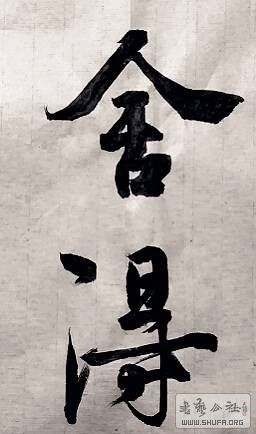 舍得
书艺公社
WWW.SHUFA.ORG